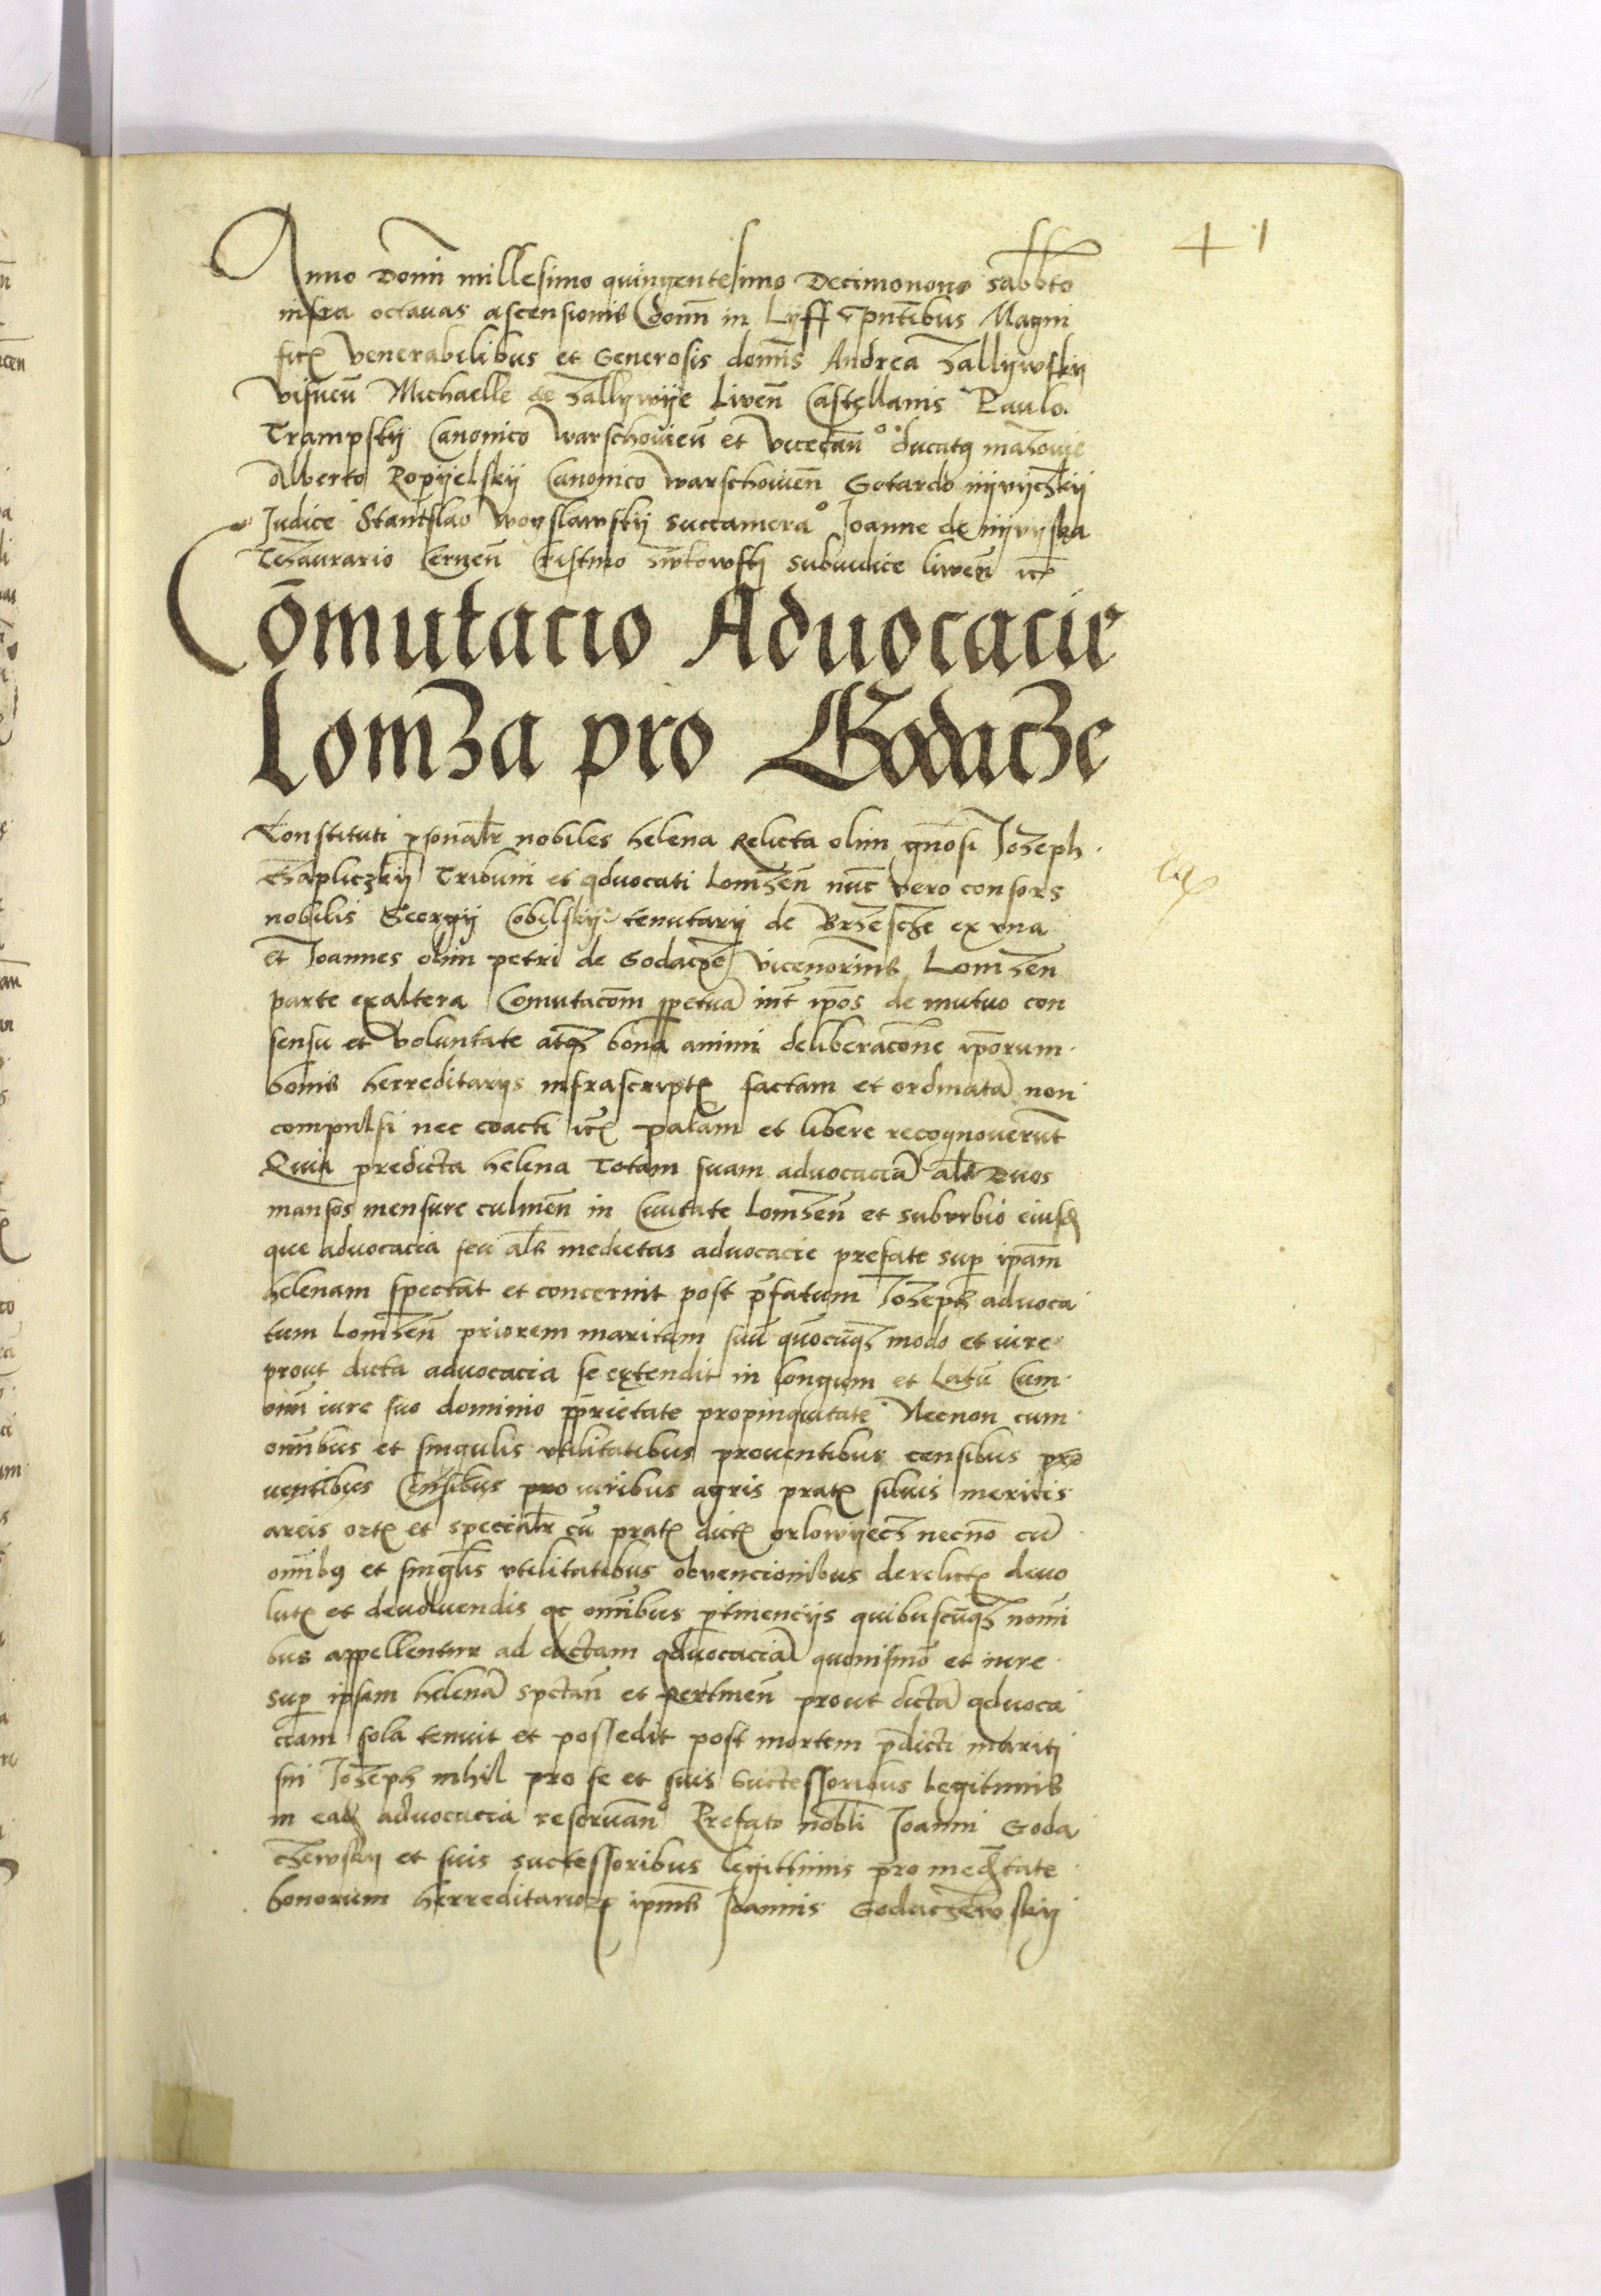 41
Anno Domi millesimo quingentesimo Decimonono sabbto
infra octauas ascensionis Domi in Lyff pntibus Magni
ficꝭ Venerabilibus et Generosis domis Andrea Zallywsky
Visneñ Michaelle de Zallywye Liveñ Castellanis Paulo
Trampsky Canonico Warschovieñ et Vicecañ ducatꝰ mazovie
Alberto Ropyelsky Canonico warschovieñ Gotardo
Judice Stanislao Woyslawsky succamera° Joanne de
Thezaurario Cerneñ subiudice liveñ itꝭ
Com̄utacio Advocacie
Lomza pro Godacze
Constituti psonalr nobiles helena Relicta olim gnosi Jozeph
Czapliczky Tribuni et advocati Lomzeñ nuc vero consors
nobilis Georgii Cobilsky tenutarij de Brzescze ex vna
et Joannes olim petri de Godacze Viceno Lomzeñ
parte exaltera Comutacōm ppetuā int ipōs de mutuo con
sensu et voluntate atqꝫ bona animi deliberacōne ipōrum
bonis herreditarijs infrascriptꝭ factam et ordinatā non
compulsi nec coacti itꝭ palam et libere recognouerunt
Quia predicta helena Totam suam advocaciā als Duos
mansos mensure culmeñ in Ciuitate Lomzeñ et suburbio eiusdꝫ
que advocacia seu als medietas advocacie prefate sup ipām
helenam spectat et concernit post pfatum Jozeph advoca
tum lomzeñ priorem maritum suū quocūqꝫ modo et iure
prout dicta advocacia se extendit in longum et Latū Cum
omi iure suo dominio pprietate propinquitate Necnon cum
omibus et singulis vtilitatibus prouentibus censibus pro
uentibus Censibus pro agris pratꝭ siluis mericis
areis ortꝭ et specialr cū pratꝭ dictꝭ orlowyecz necnō cū
omibꝰ et singlis vtilitatibus obvencionibus derelictꝭ deuo
lutꝭ et devoluendis ac omibus ptinencijs quibuscūqꝫ nomi
bus appellentur ad dictam advocaciā quouismō et iure
sup ipsam helenā spectañ et pertineñ prout dictā advoca
ciam sola tenuit et possedit post mortem pdicti mariti
sui Jozeph nihil pro se et suis Successoribus legitimis
in eadꝫ advocacia reservan° Prefato nobli Joanni Goda
czewsky et suis successoribus legittimis pro medietate
bonorum herreditarioꝝ ipius Joannis Godaczewsky